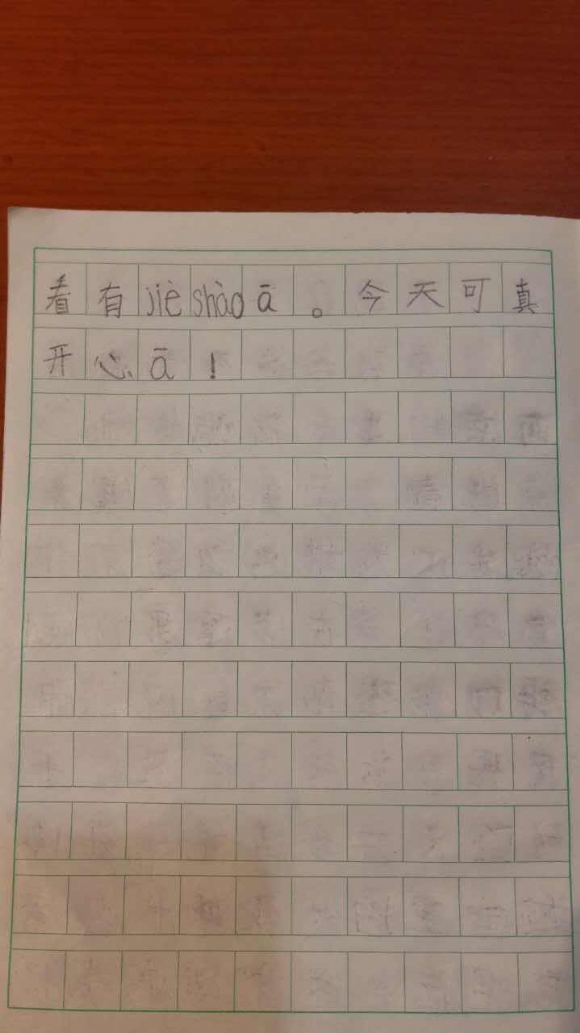 看有jiè shào ā。今天可真
开心ā！